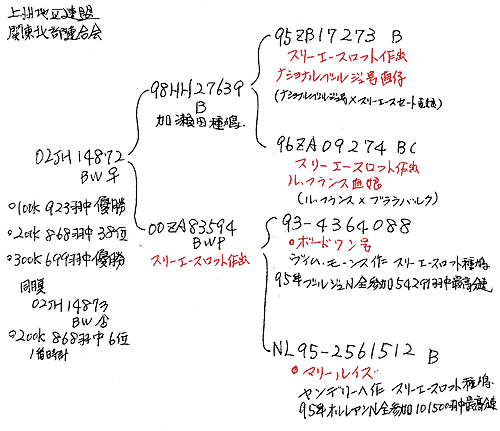 上州地区連盟
関東北部連合会
95ZB17273 B
スリーエースロット作出
ナショナルブルジュ号直仔
(ナショナルブルジュ号×スリーエースセート直娘)
98HH27639
B
加瀬田種鳩
96ZA09274 BC
スリーエースロット作出
ル、フランス直娘
(ル、フランス×ブララバルク)
02JH14872
BW♀
○100K 923羽中優勝
○200K 868羽中38位
○300K 699羽中優勝
同腹
02JH14873
BW♂
○200K 868羽中6位
1番時計
00ZA83594
BWP
スリーエースロット作出
93-4364088
○ボードワン号
ヴィム.モーンス作 スリーエースロット種鳩
95年ブルジュN全参加54291羽中最高分速
NL95-2561512 B
○マリールイズ
ヤンデリーヘ作 スリーエースロット種鳩
95年オルレアンN全参加101500羽中最高分速